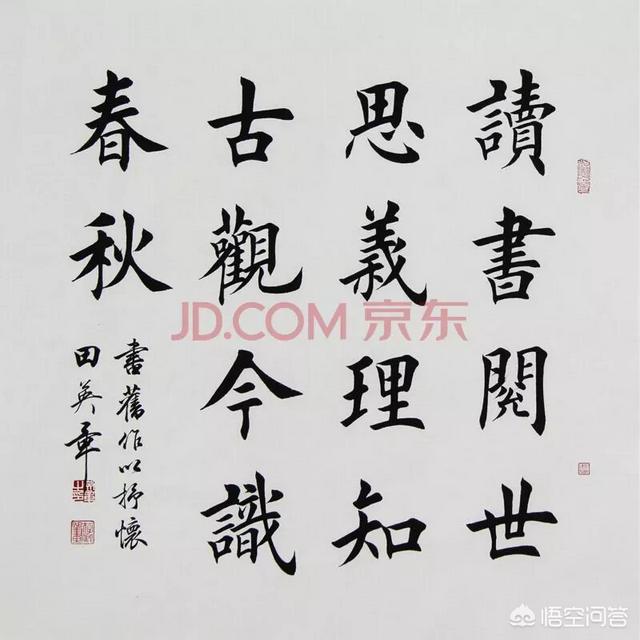 讀書閱世
思義理知
古觀今識
春秋
書舊作以抒懷
田英章
JD.COM 京东
悟空问答